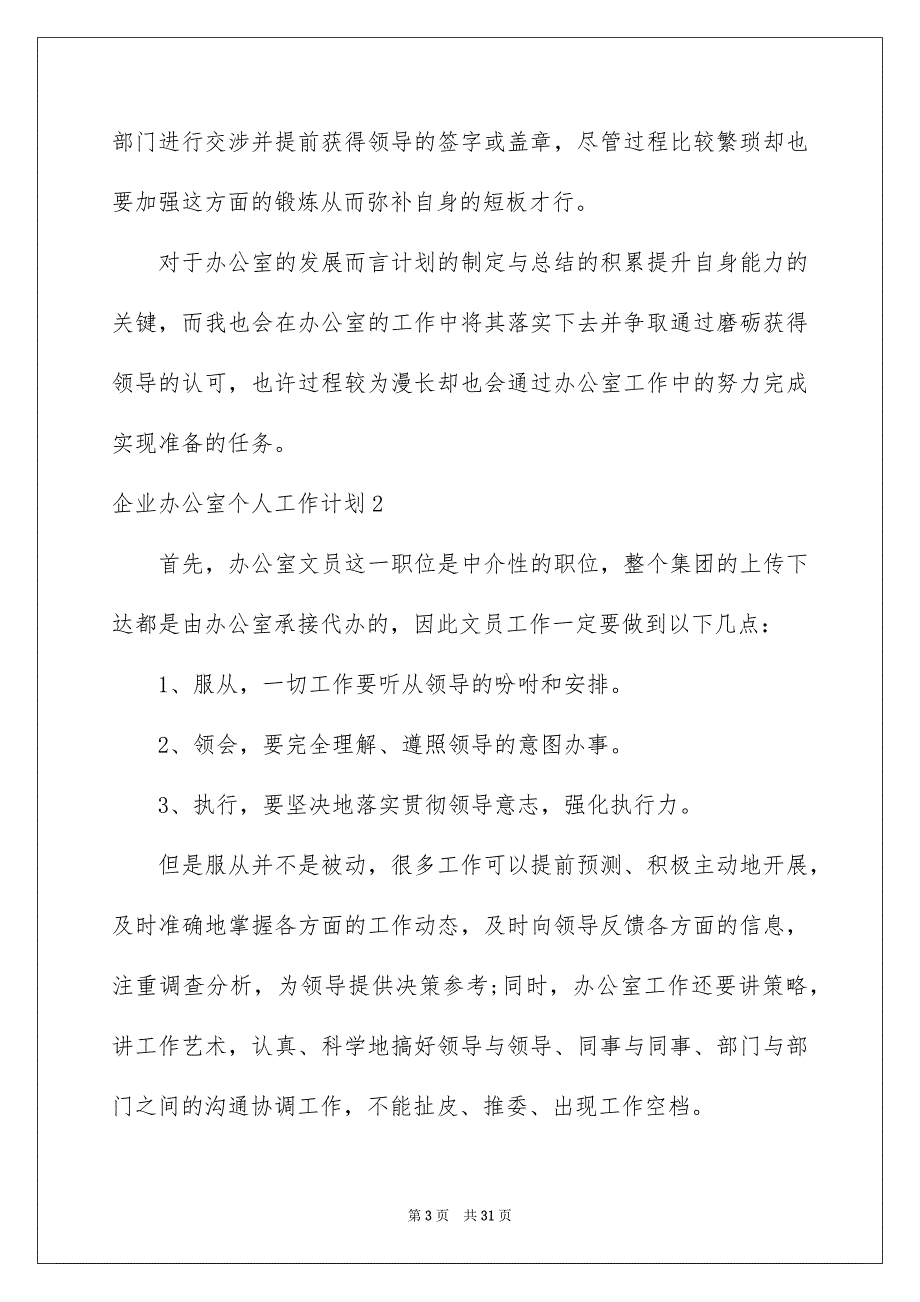 部门进行交涉并提前获得领导的签字或盖章，尽管过程比较繁琐却也
要加强这方面的锻炼从而弥补自身的短板才行。
对于办公室的发展而言计划的制定与总结的积累提升自身能力的
关键，而我也会在办公室的工作中将其落实下去并争取通过磨砺获得
领导的认可，也许过程较为漫长却也会通过办公室工作中的努力完成
实现准备的任务。
企业办公室个人工作计划2
首先，办公室文员这一职位是中介性的职位，整个集团的上传下
达都是由办公室承接代办的，因此文员工作一定要做到以下几点：
1、服从，一切工作要听从领导的吩咐和安排。
2、领会，要完全理解、遵照领导的意图办事。
3、执行，要坚决地落实贯彻领导意志，强化执行力。
但是服从并不是被动，很多工作可以提前预测、积极主动地开展，
及时准确地掌握各方面的工作动态，及时向领导反馈各方面的信息，
注重调查分析，为领导提供决策参考;同时，办公室工作还要讲策略，
讲工作艺术，认真、科学地搞好领导与领导、同事与同事、部门与部
门之间的沟通协调工作，不能扯皮、推委、出现工作空档。
第 3 页 共 31 页